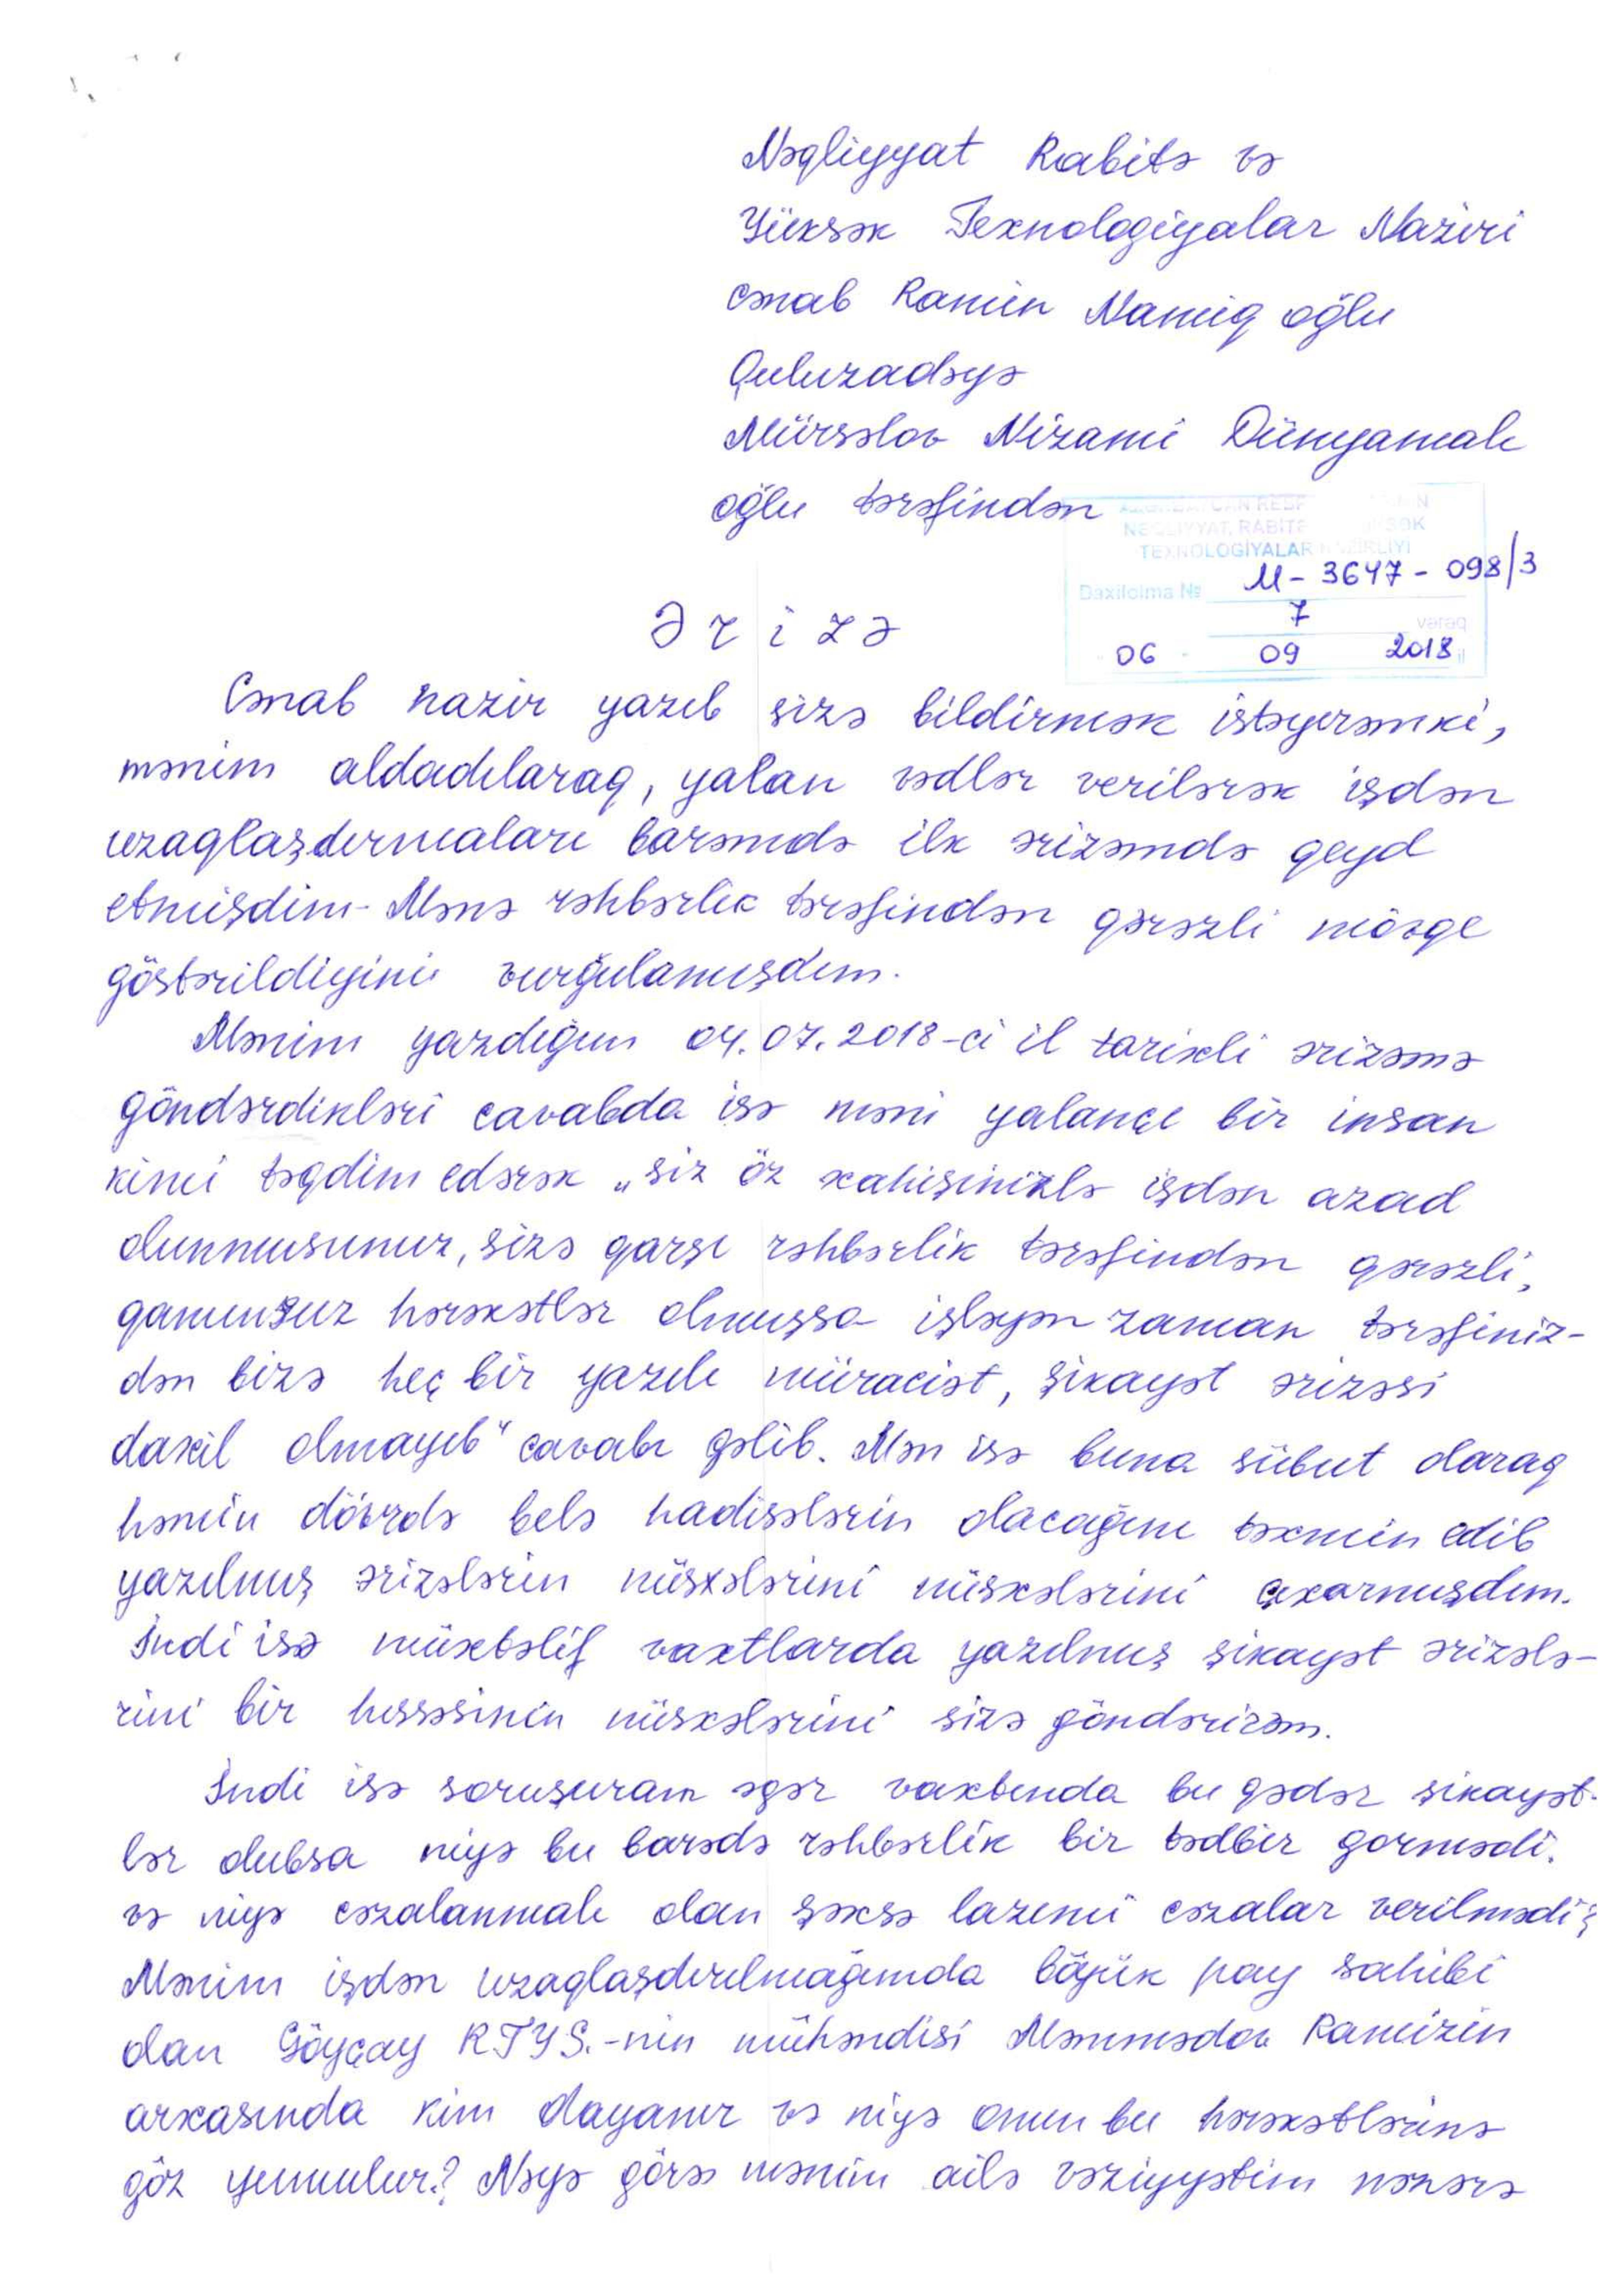 Nəqliyyat Rabitə və
Yüksək Texnologiyalar Naziri
cənab Ramin Namiq oğlu
Quluzadəyə
Mürsəlov Nizami Dünyamalı
oğlu tərəfindən
AZƏRBAYCAN RESP
NƏQLİYYAT, RABİTƏ YÜKSƏK
TEXNOLOGİYALAR NAZİRLİYİ
Daxilolma № M- 3647 - 098/3
7 vərəq
06 - 09 2018 il
Ə r i z ə
Cənab nazir yazıb sizə bildirmək istəyirəmki,
mənim aldadılaraq, yalan vədlər verilərək işdən
uzaqlaşdırmaları barəmdə ilk ərizəmdə qeyd
etmişdim. Mənə rəhbərlik tərəfindən qərəzli mövqe
göstərildiyini vurğulamışdım.
Mənim yazdığım 04.07.2018-ci il tarixli ərizəmə
göndərdikləri cavabda isə məni yalançı bir insan
kimi təqdim edərək „siz öz xahişinizlə işdən azad
olunmusunuz, sizə qarşı rəhbərlik tərəfindən qərəzli,
qanunsuz hərəkətlər olmuşsa işləyən zaman tərəfiniz-
dən bizə heç bir yazılı müraciət, şikayət ərizəsi
daxil olmayıb" cavabı gəlib. Mən isə buna sübut olaraq
həmin dövrdə belə hadisələrin olacağını təxmin edib
yazılmış ərizələrin nüsxələrini nüsxələrini çıxarmışdım.
İndi isə müxtəlif vaxtlarda yazılmış şikayət ərizələ-
rini bir hissəsinin nüsxələrini sizə göndərirəm.
İndi isə soruşuram əgər vaxtında bu qədər şikayət-
lər olubsa niyə bu barədə rəhbərlik bir tədbir görmədi.
və niyə cəzalanmalı olan şəxsə lazımi cəzalar verilmədi?
Mənim işdən uzaqlaşdırılmağımda böyük pay sahibi
olan Göyçay RTYS.-nin mühəndisi Məmmədov Ramizin
arxasında kim dayanır və niyə onun bu hərəkətlərinə
göz yumulur? Nəyə görə mənim ailə vəziyyətim nəzərə